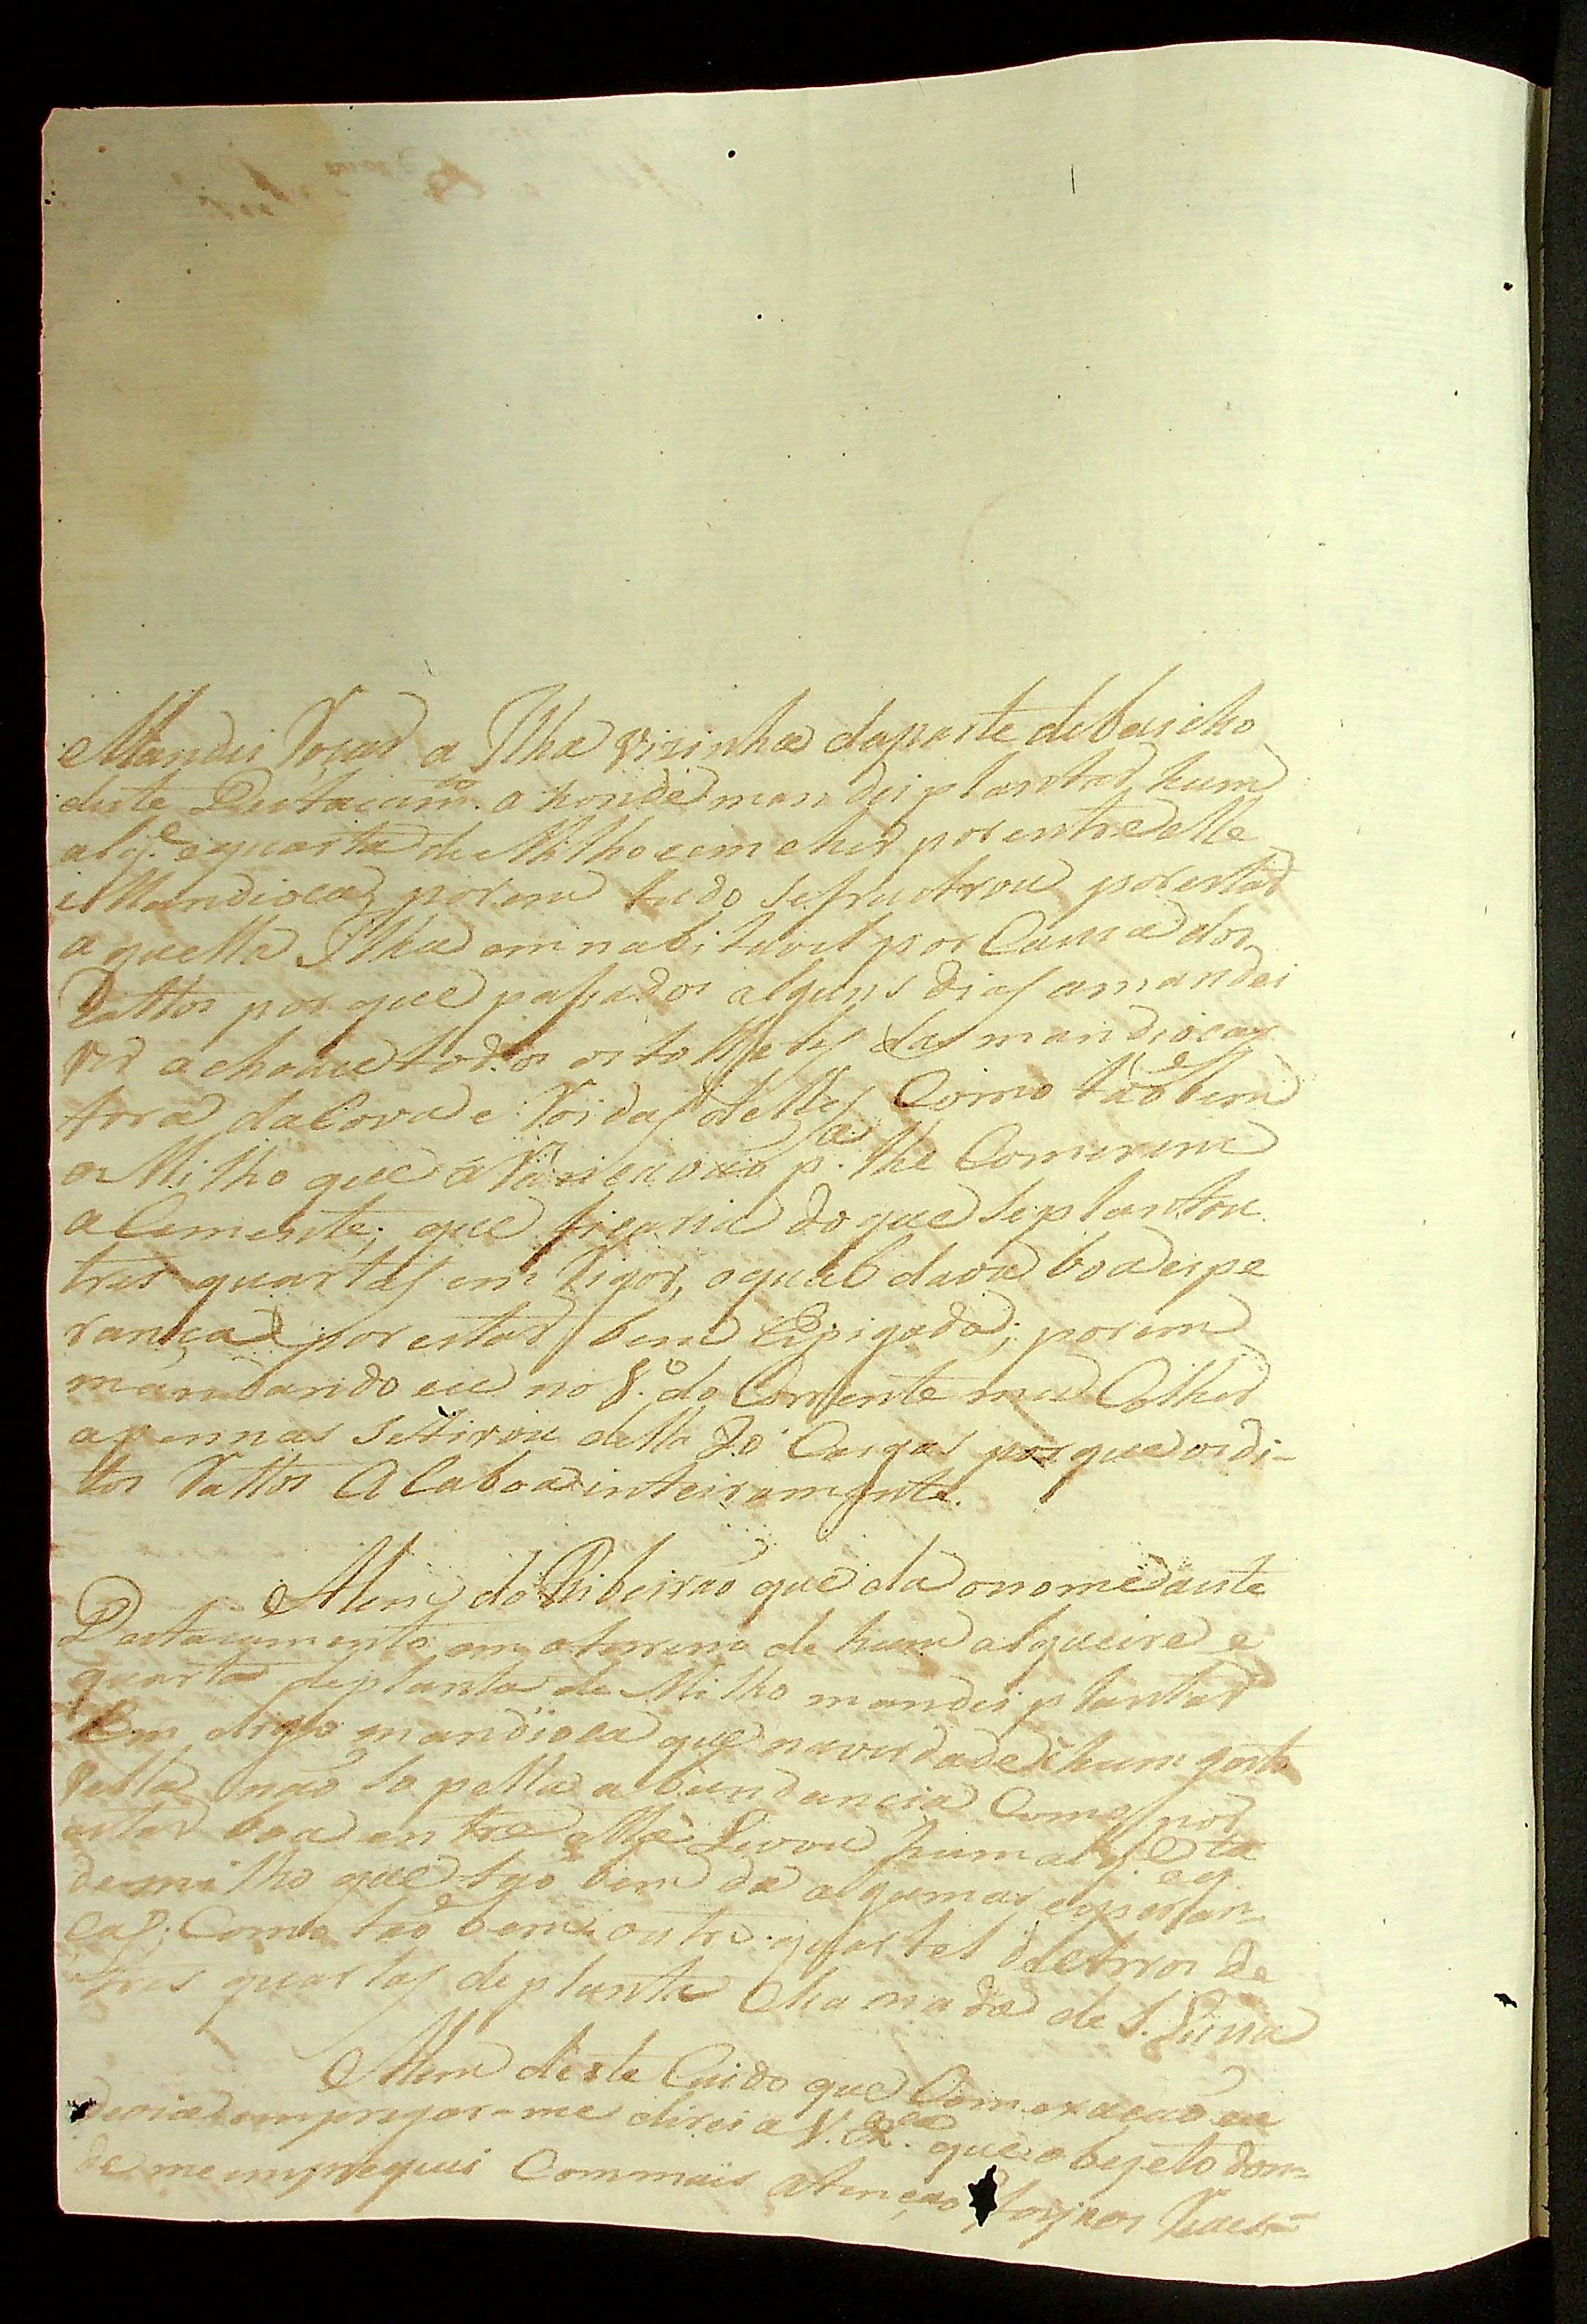 Mandei Roçar a Ilha vizinha daparte debaicho
deste Destacam.to ahonde mandei plantar hum
alq.e equarta de Milho eemcher por entre elle
eMandioca, porem tudo sefructrou porestar
aquella Ilha emnabitavel por Causa dos
Rattos por que passados alguns dias amandei
ver achouce todos os tolletes das mandiocas
fora daCova e Roidas delles Como tão bem
o Milho que p.a lhe Comerem
aCemente; que ficaria do que seplantou
tres quartas em vigor, oqual dava boa espe
rança por estar bem Espigado; porem
mandando eu no do Corrente mes Colher
apennas setirou delle 20 Cargas porque os di-
tos Rattos Acaboa inteiramente.
Alem do Ribeirão que da onome aeste
Destacamento em oterreno de hum alqueire e
quarta deplanta de Milho mandei plantar
Em mandioca que naverdade he hum gosto
vella não so pella abundancia Como por
estar boa entre ella Levou hum alq.e eq.ta
demilho que tão bem da algumas esperan-
ças. Como tão bem outro quartel deArros de
tres quartas deplanta Chamado de S. Luiza
Alem deste Cuido que Com exação eu
devia empregar-me direi a V. Ex.ca que oObejeto don-
de meempreguei Commais atenção foy nos